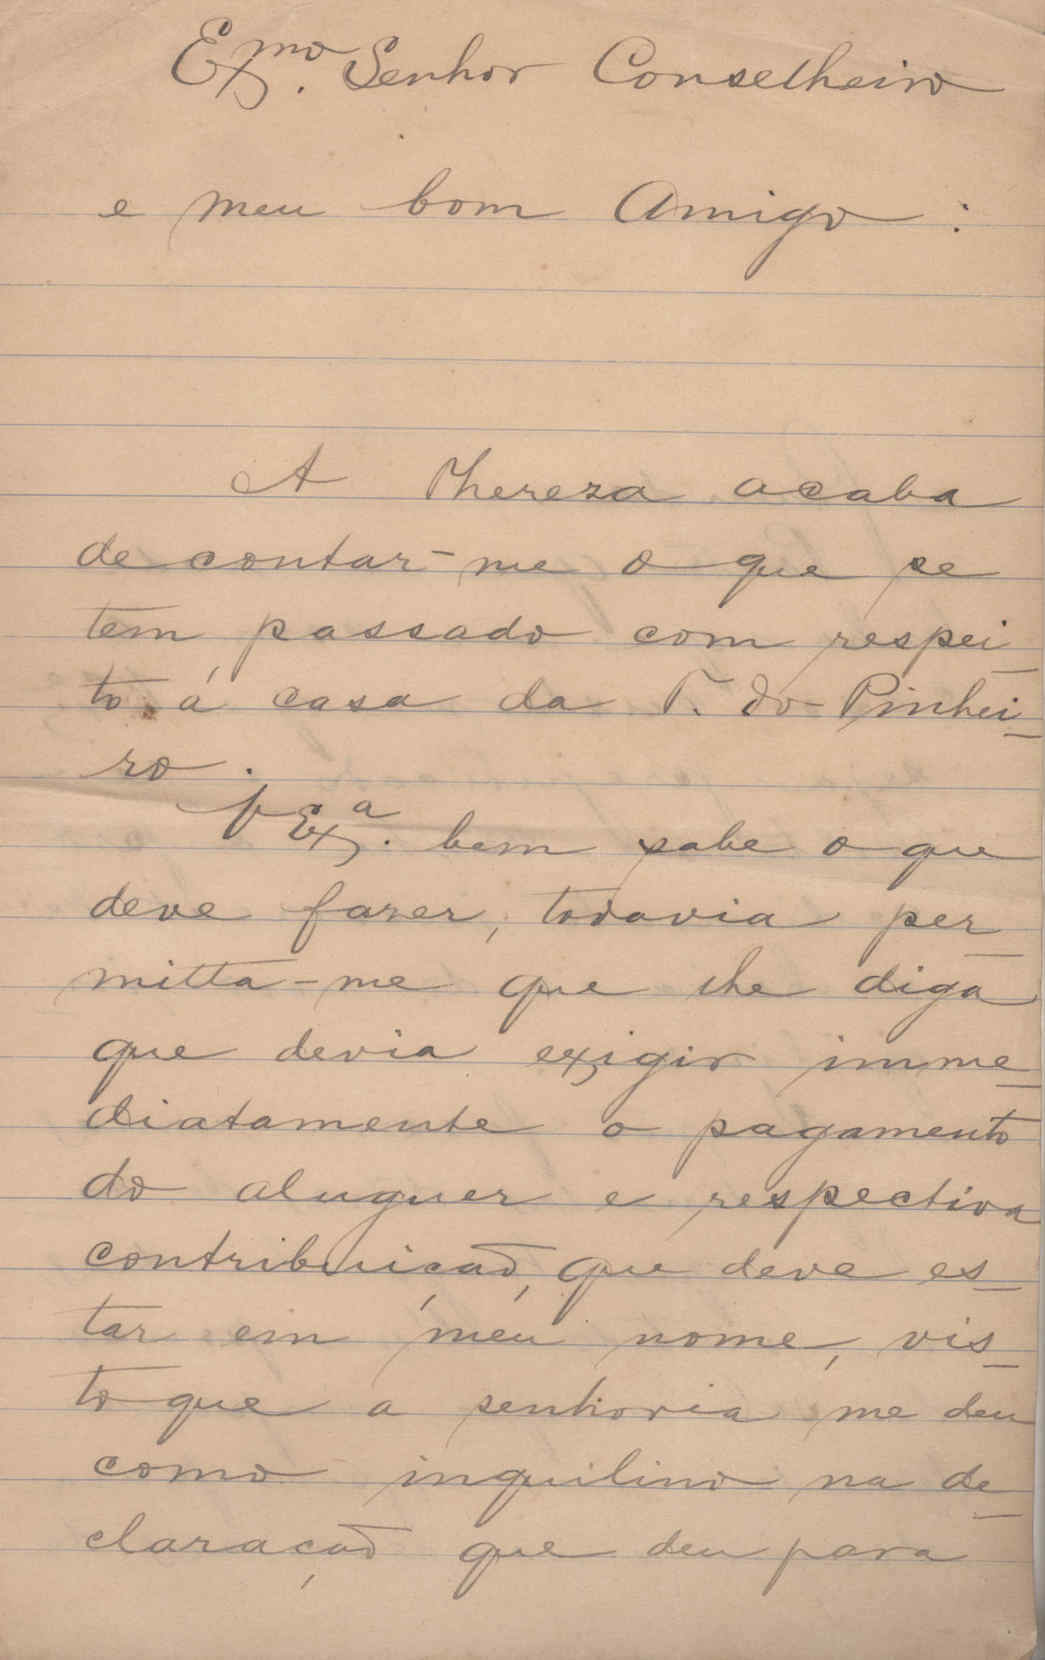 Exmo. Senhor Conselheiro
e meu bom Amigo :
A Thereza acaba
de contar-me o que se
tem passado com respei
to á casa da T. do Pinhei
ro.
V Exa. bem sabe o que
deve fazer, todavia per
mitta-me que lhe diga
que devia exigir imme
diatamente o pagamento
do aluguer e respectiva
contribuição, que deve es
tar em meu nome, vis
to que a senhoria me deu
como inquilino na de
claração que deu para